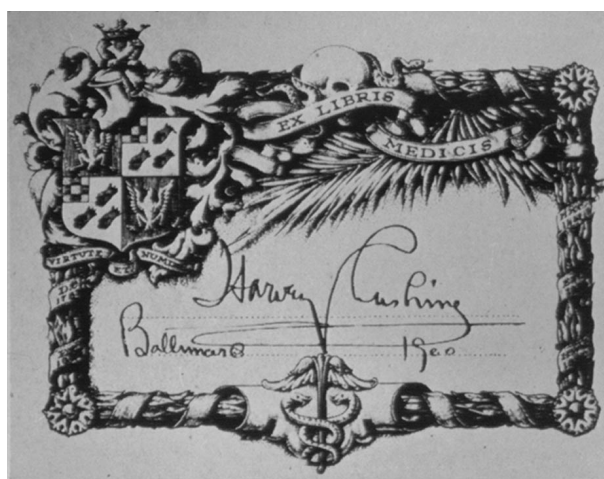 EX LIBRIS
MEDICIS
VIRTUTE ET NUMI
Harvey Cushing
Baltimore 1900